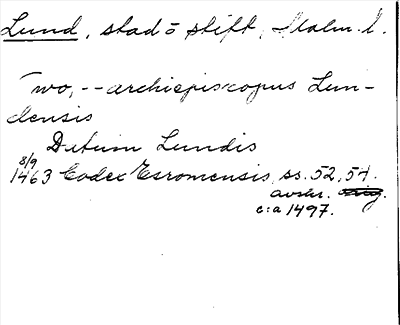 Lund, stad o stift, Malm. l.
Two, -- archiepiscopus Lun-
densis
Datum Lundis
8/9
1463 Codex Esromensis, ss. 52, 54.
avskr.
c:a 1497.